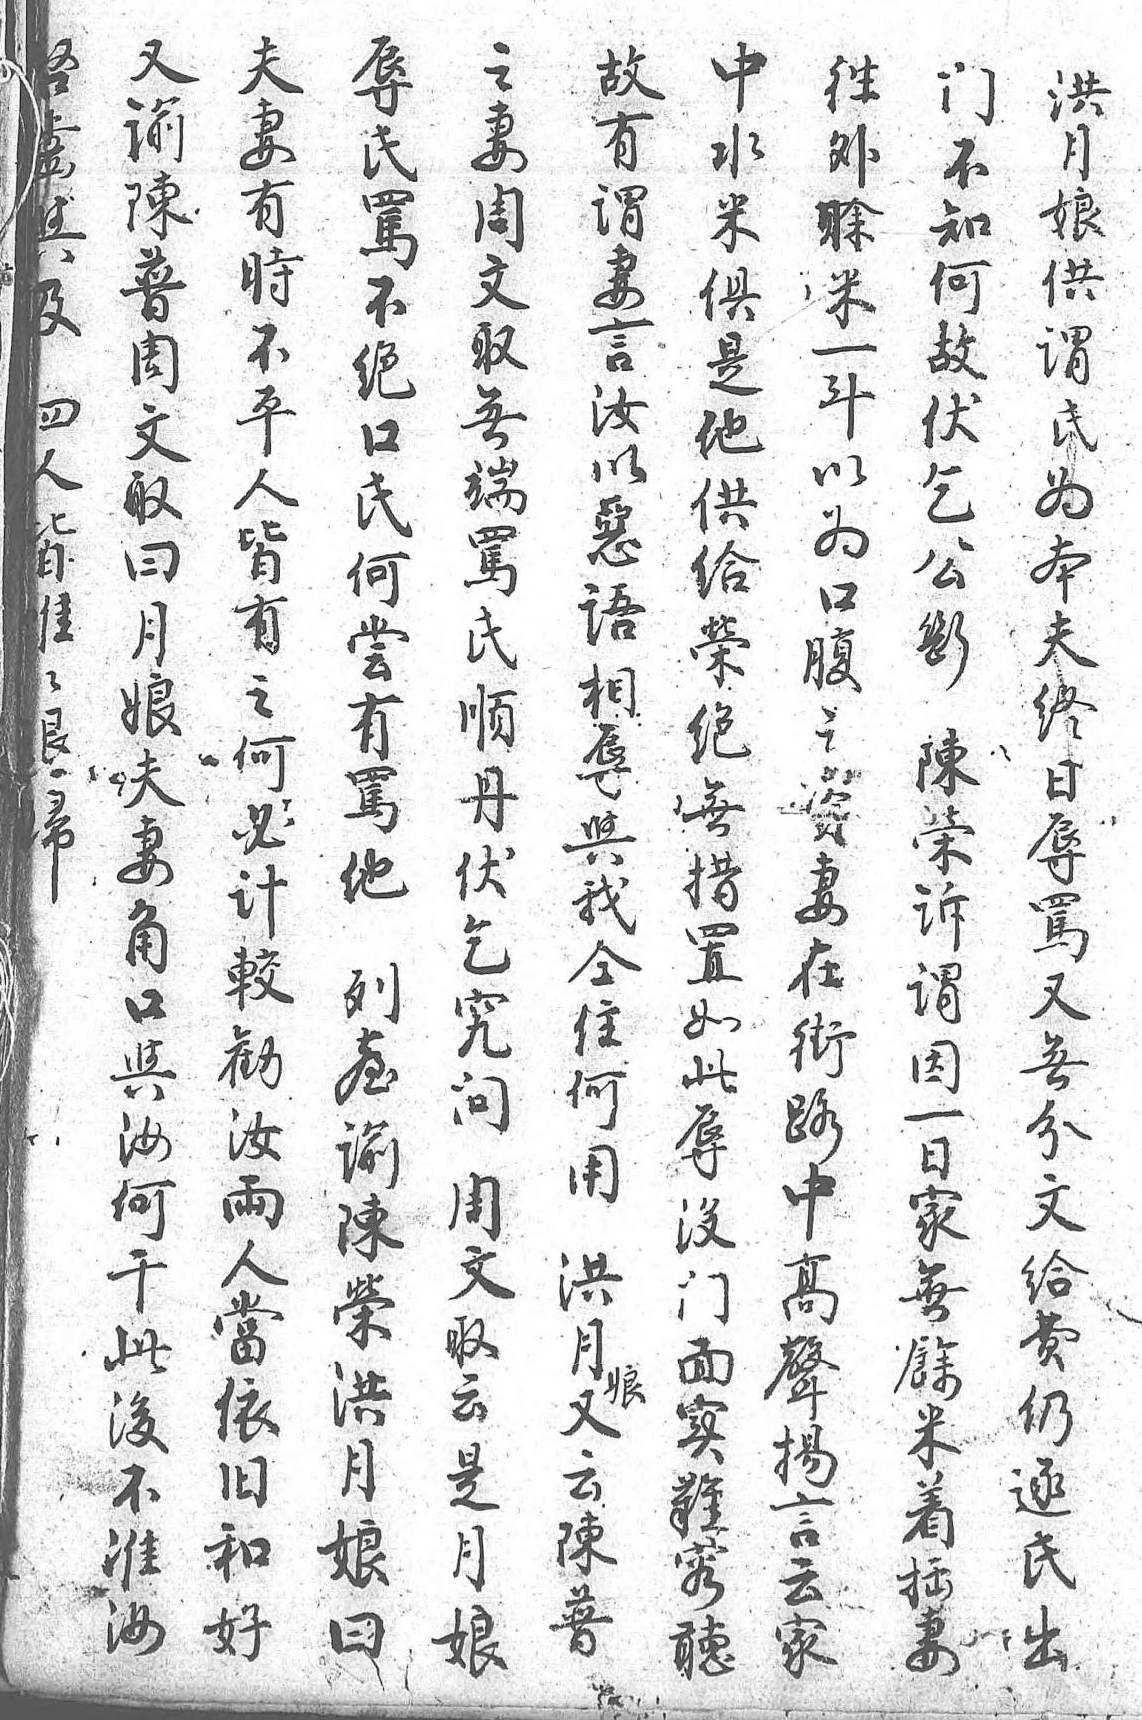 洪月娘供謂氏为本夫终日辱罵又無分文给费仍逐氏出
门不知何故伏乞公斷　陳榮訴謂因一日家無餘米着拙妻
往外賒米一斗以为口腹之資妻在街路中高聲揚言云家
中水米俱是他供给榮绝無措置如此辱没门面实難容聴
故有謂妻言汝以惡語相辱與我仝住何用　洪月娘又云陳普
之妻周文取無端罵氏順丹伏乞究问　周文取云是月娘
辱氏罵不绝口氏何尝有罵他　列臺諭陳榮洪月娘曰
夫妻有時不平人皆有之何必计較劝汝兩人當依旧和好
又諭陳普周文取曰月娘夫妻角口與汝何干此後不准汝
及四人皆佳